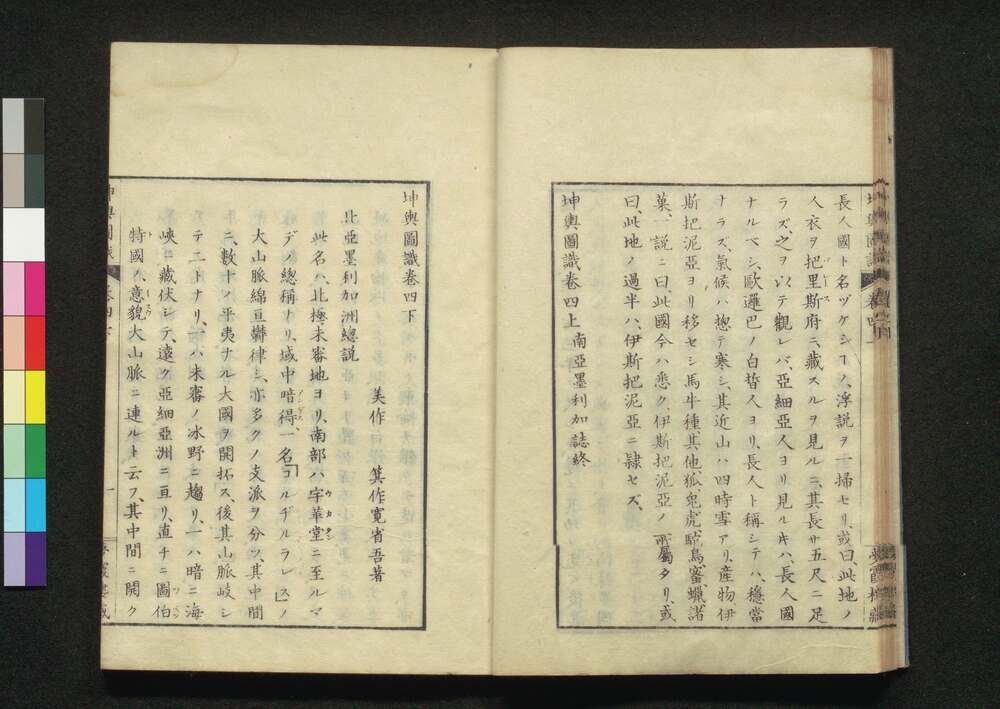 長人國ト名ヅケシコノ浮説ヲ一掃セリ、或曰、此地ノ
人衣ヲ把里斯府ニ藏スルヲ見ルニ、其長サ五尺ニ足
ラズ、之ヲ以テ觀レバ、亞細亞人ヨリ見ルキハ、長人國
ナルベシ、歐邏巴ノ白晳人ヨリ、長人ト稱シテハ、穩當
ナラズ、氣候ハ惣テ寒シ、其近山ハ四時雪アリ、産物伊
斯把泥亞ヨリ移セシ馬牛種其他、狐兎虎、駝鳥、蜜蝋諸
菓、一説ニ曰、此國今ハ悉ク、伊斯把泥亞ノ所屬タリ、或
曰、此地ノ過半ハ、伊斯把泥亞ニ隷セズ、
坤輿圖識卷四上 南亞墨利加誌終
坤輿圖識卷四下
美作 箕作寛省吾著
北亞墨利加洲總説
此名ハ、北極未審地ヨリ、南部ハ宇華堂ニ至ルマ
デノ總稱ナリ、域中暗得一名「コルヂルラレス」ノ
大山脈綿亘欝律シ、亦多クノ支派ヲ分ツ、其中間
ニ、數十ノ平夷ナル大國ヲ開拓ス、後其山脈岐シ
テ二トナリ、一ハ未審ノ氷野ニ趨リ、一ハ暗ニ海
峽ニ藏伏シテ、遠ク亞細亞洲ニ亘リ、直チニ圖伯
特國ノ意貌大山脈ニ連ルト云フ、其中間ニ開ク